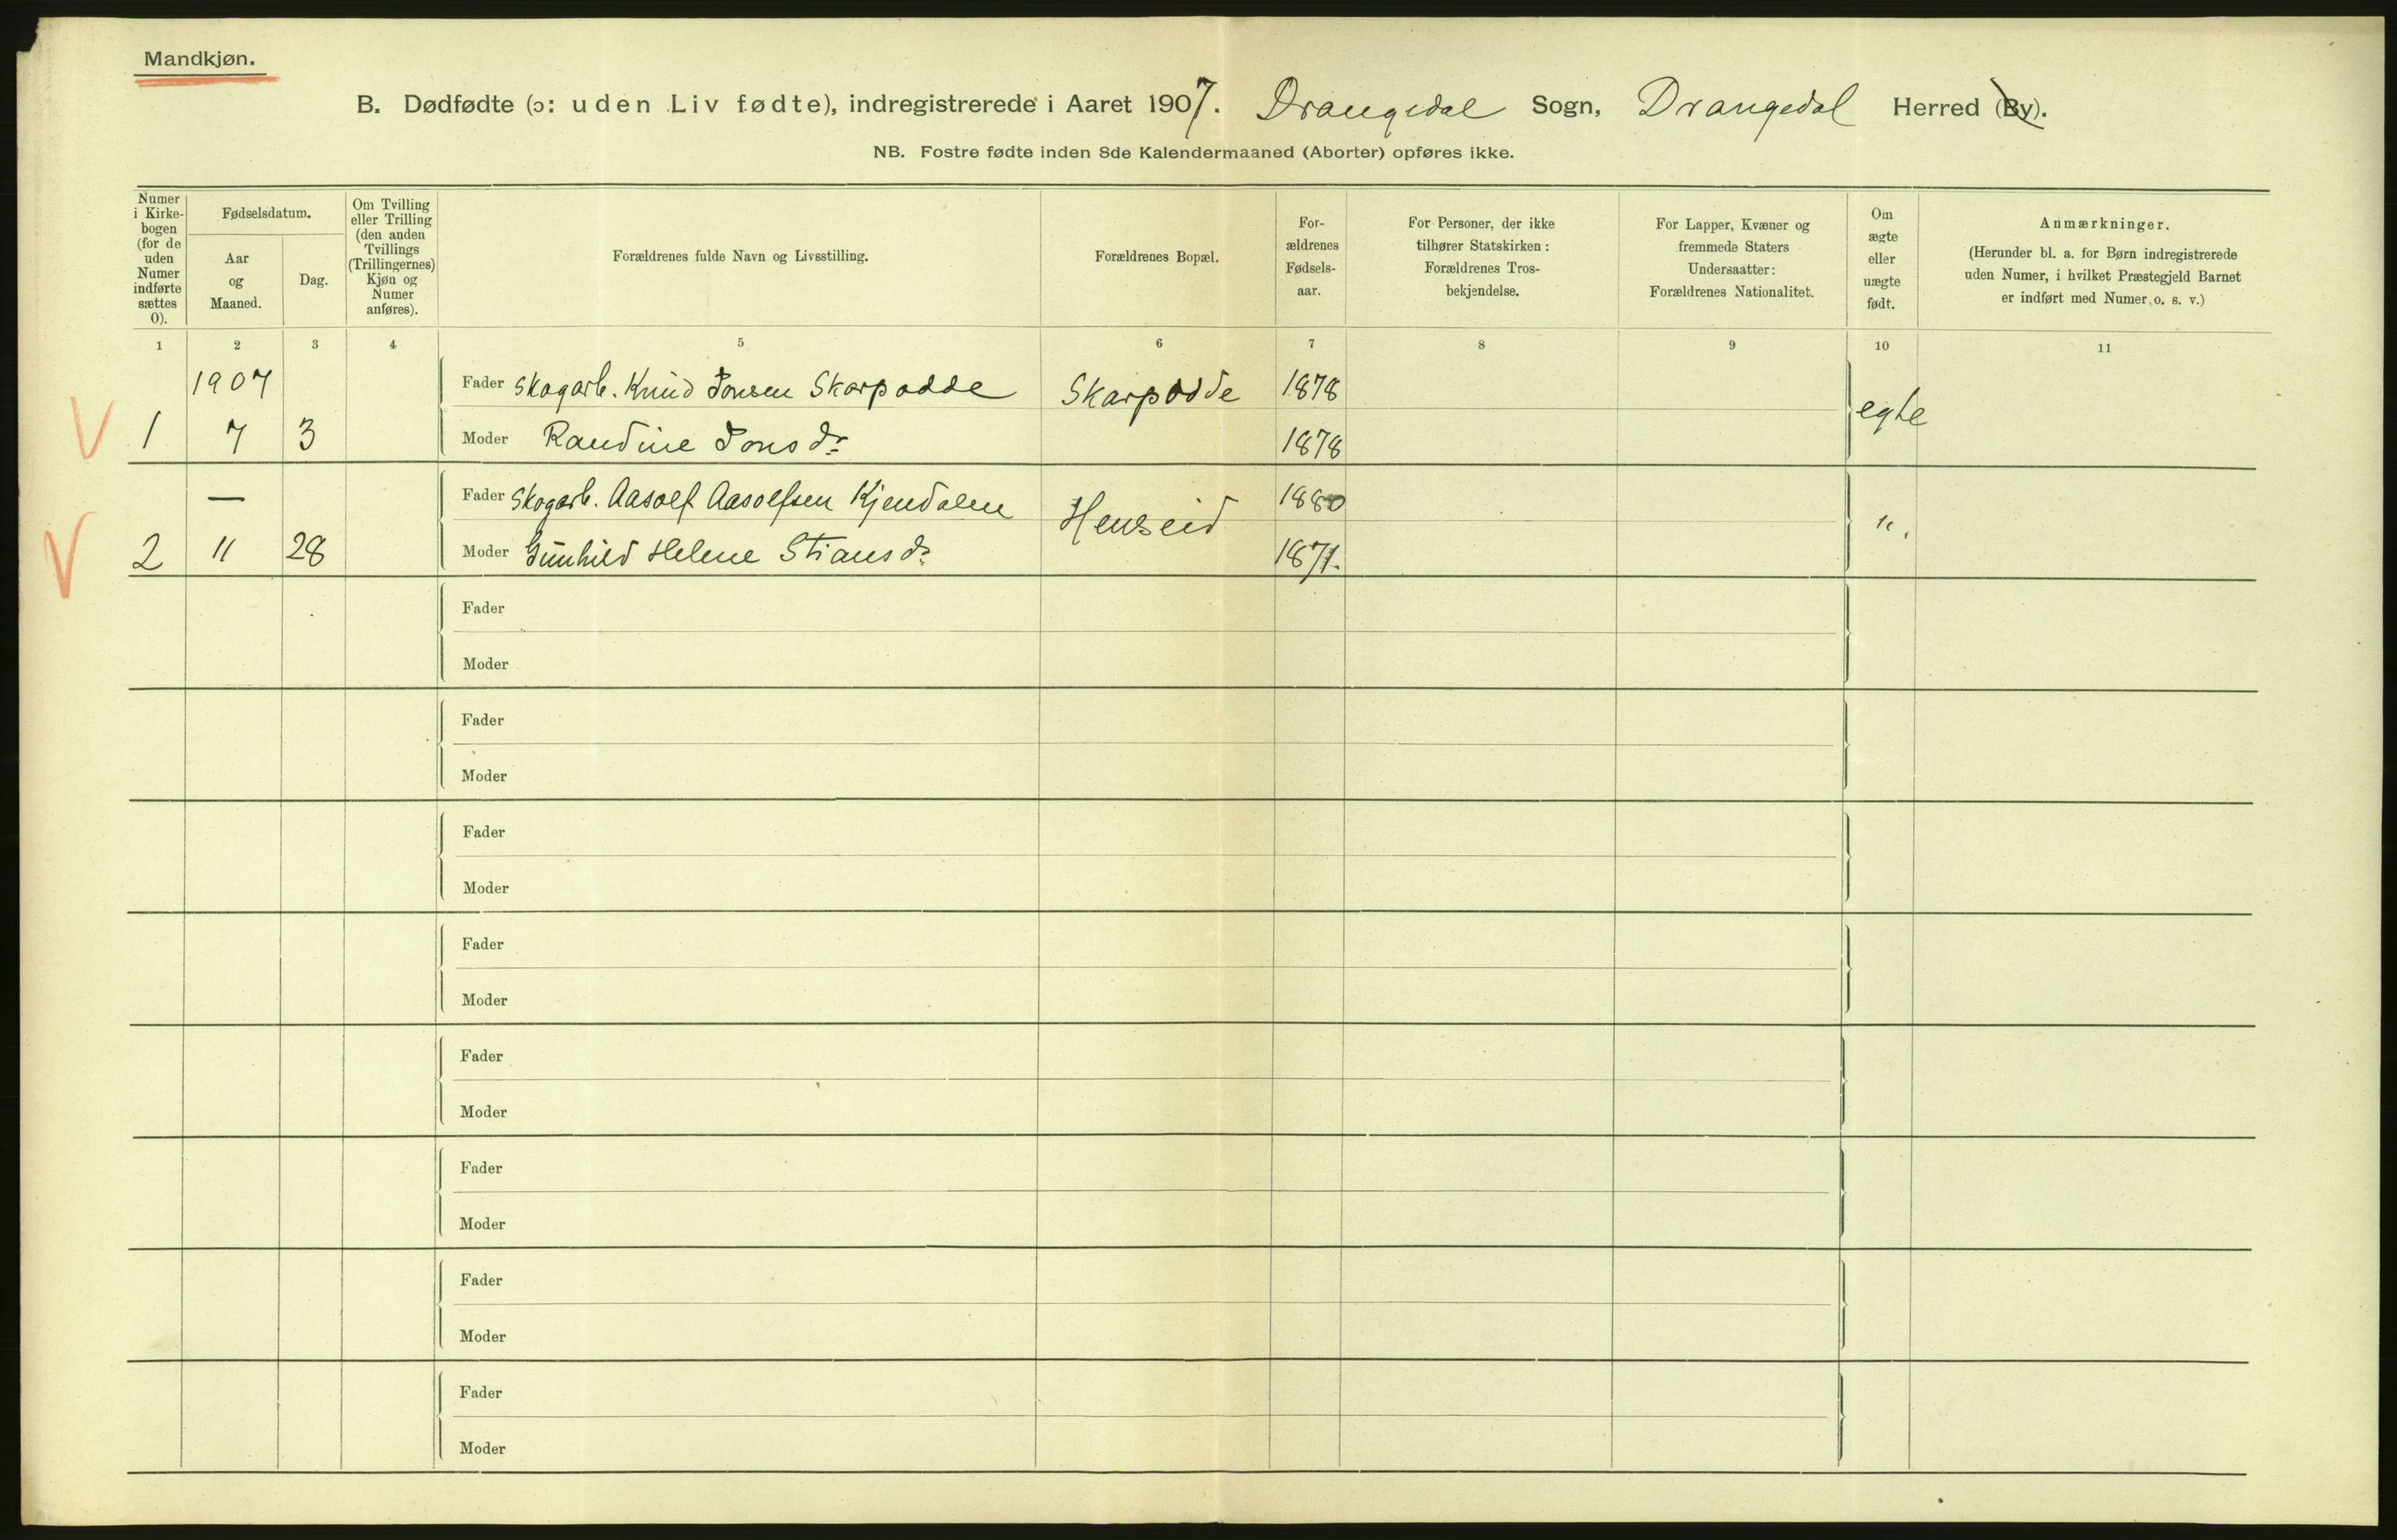 Mandkjøn.
B. Dødfødte (ɔ: uden Liv fødte), indregistrerede i Aaret 1907. Drangedal Sogn, Drangedal Herred (By).
NB. Fostre fødte inden 8de Kalendermaaned (Aborter) opføres ikke.
Numer i Kirke-bogen (for de uden Numer indførte sættes 0).
Fødselsdatum.
Aar og Maaned.
Dag.
Om Tvilling eller Trilling (den anden Tvillings (Trillingernes) Kjøn og Numer anføres).
Forældrenes fulde Navn og Livsstilling.
Forældrenes Bopæl.
For-ældrenes Fødsels-aar.
For Personer, der ikke tilhører Statskirken: Forældrenes Tros-bekjendelse.
For Lapper, Kvæner og fremmede Staters Undersaatter: Forældrenes Nationalitet.
Om ægte eller uægte født.
Anmærkninger.
(Herunder bl. a. for Børn indregistrerede uden Numer, i hvilket Præstegjeld Barnet er indført med Numer o. s. v.)
1 2 3 4 5 6 7 8 9 10 11
1907 Fader Skogarb. Knud Jonsen Skarpodde Skarpodde 1878 egte
V 1 7 3 Moder Randine Jonsdr 1878
— Fader Skogarb. Aasolf Aasolfsen Kjendalen Henseid 1880 "
V 2 11 28 Moder Gunhild Helene Stiansdr 1871.
Fader
Moder
Fader
Moder
Fader
Moder
Fader
Moder
Fader
Moder
Fader
Moder
Fader
Moder
Fader
Moder